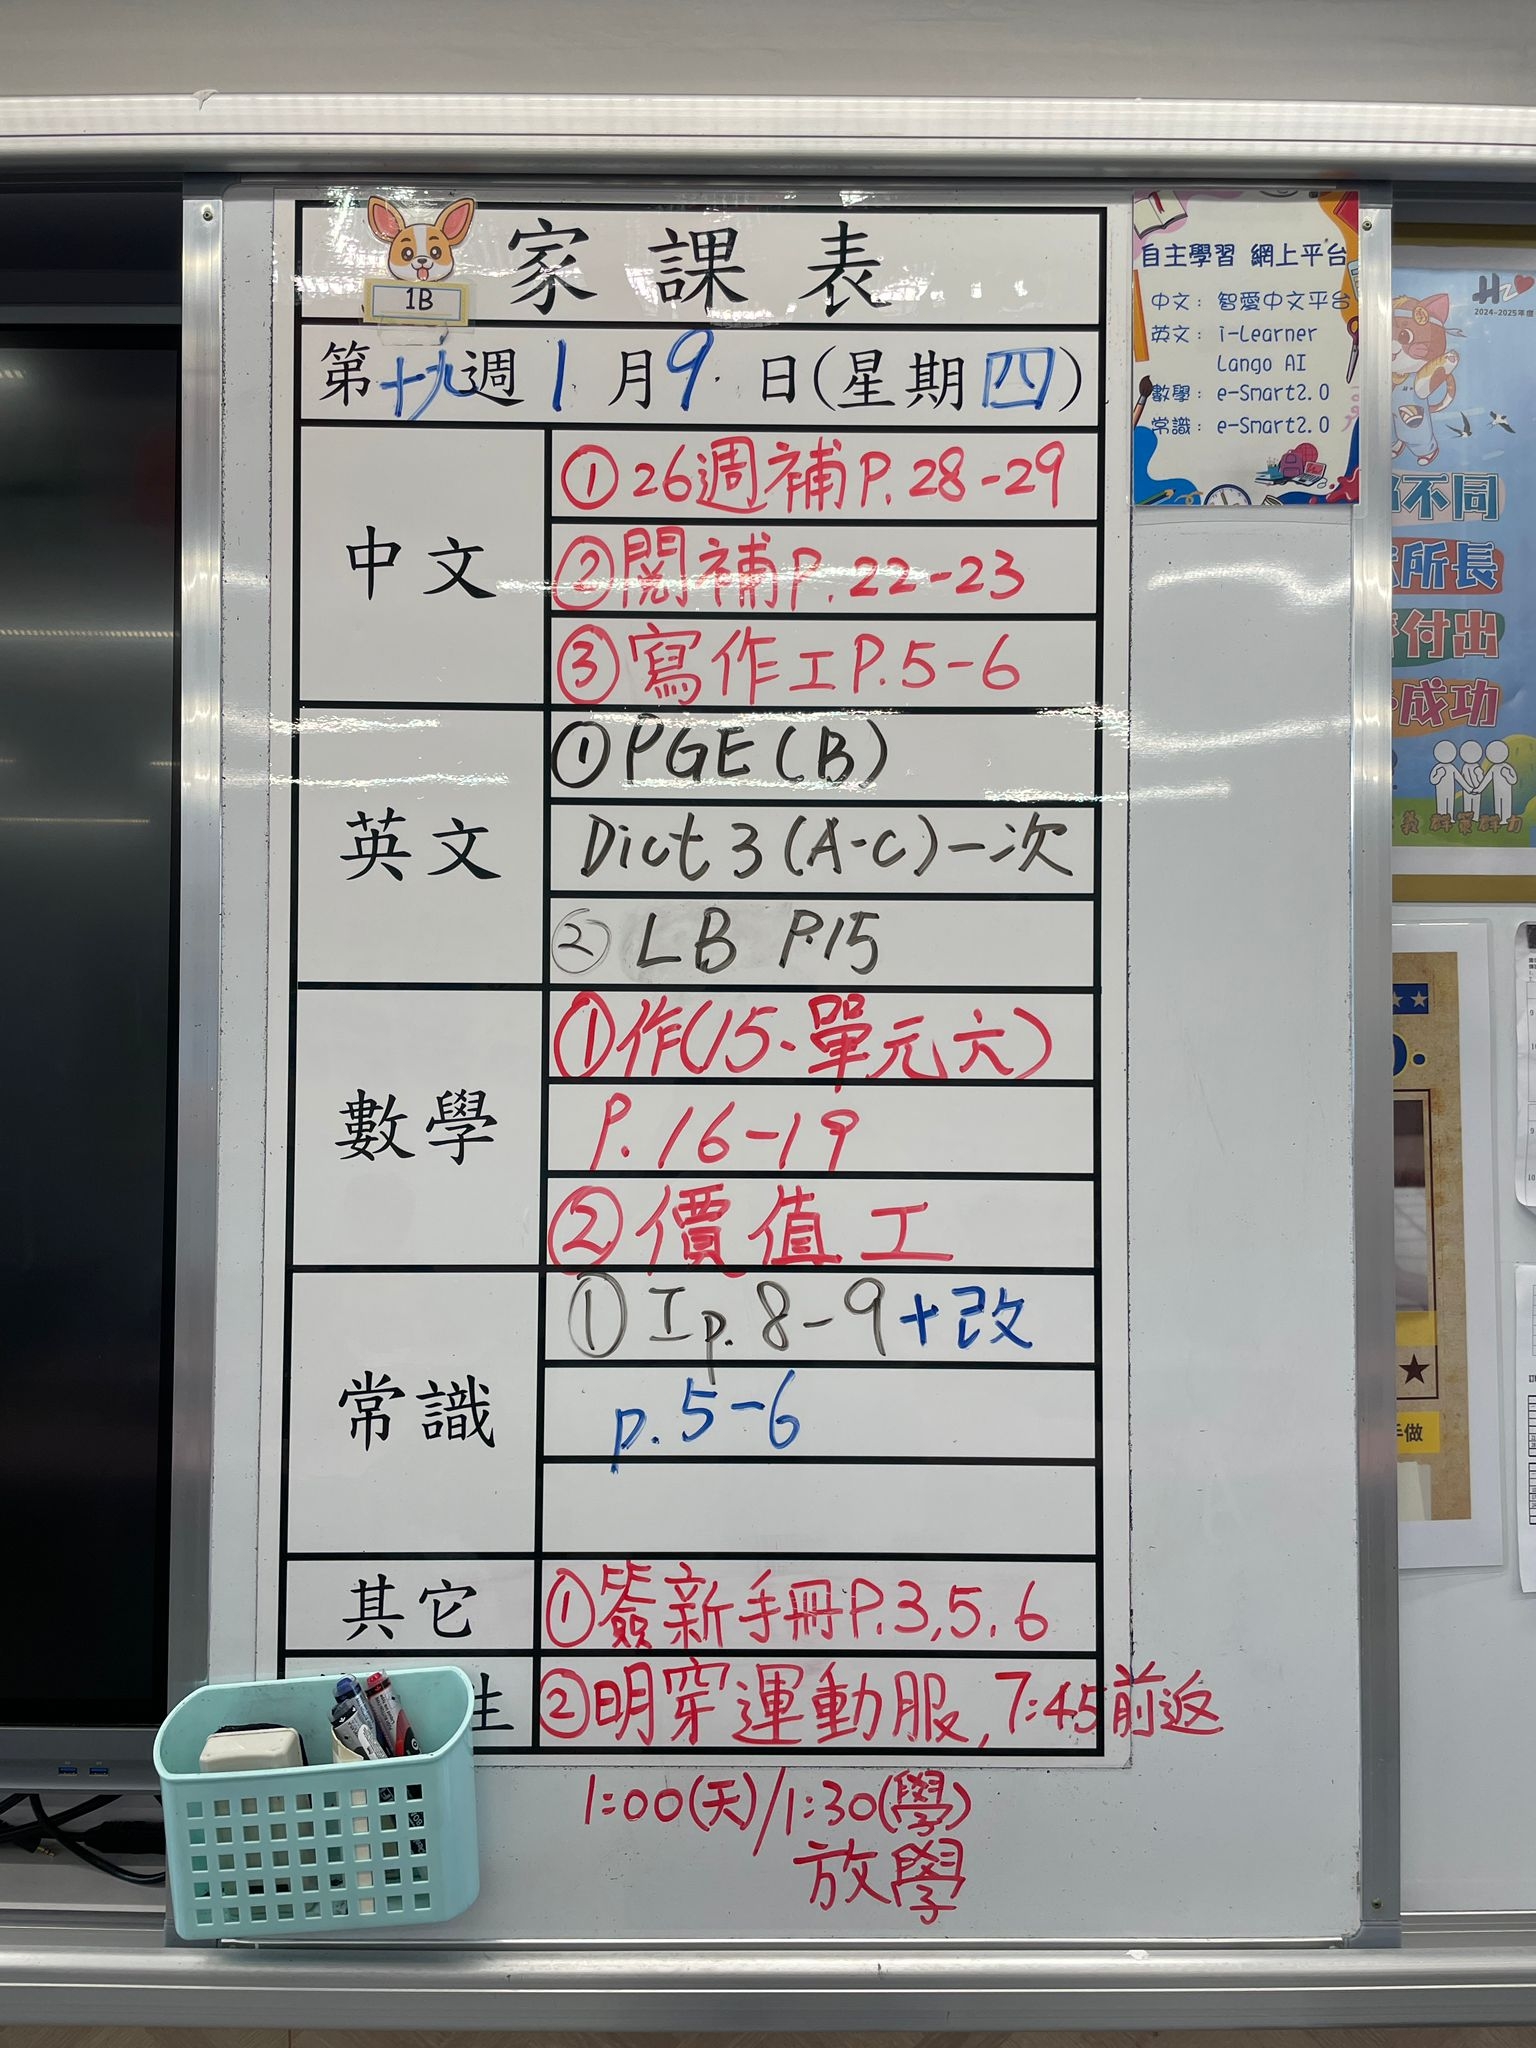 家課表
1B
第十九週 1月9日(星期四)
中文
①26週補P.28-29
②閱補P.22-23
③寫作工P.5-6
英文
①PGE(B)
Dict 3 (A-C)一次
② LB P.15
數學
①作(15、單元六)
P.16-19
②價值工
常識
①工p.8-9+改
p.5-6
其它
①簽新手冊P.3,5,6
生
②明穿運動服,7:45前返
1:00(天)/1:30(學)
放學
自主學習 網上平台
中文: 智愛中文平台
英文: i-Learner
Lango AI
數學: e-Smart2.0
常識: e-Smart2.0
2024-2025年度
不同
所長
付出
成功
群策群力
做